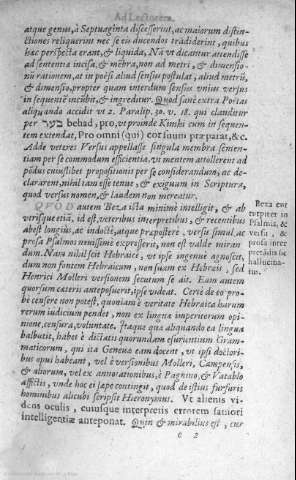 Ad Lectorem.
atque genus, à Septuaginta discesserint, ac maiorum distin-
ctiones reliquerint nec se eis ducendos tradiderint, quibus
hac perspecta erant, & liquida, Nā vt dicantur attendisse
ad sententia incisa, & mēbra, non ad metri, & dimensio-
nū rationem, at in poësi aliud sensus postulat, aliud metrū,
& dimensio, propter quam interdum sensus vnius versus
in sequentē incubit, & ingreditur. Quod sanè extra Poetas
aliquando accidit vt 2. Paralip. 30. v. 18. qui clauditur
per בעד behad, pro, vt proinde Kimhi cum in sequen-
tem extendat, Pro omni (qui) cor suum præparat, &c.
Adde veteres Versus appellasse singula membra senten-
tiam per se commodum efficientia, vti mentem attollerent ad
pōdus cuiuslibet propositionis per se considerandum, ac de-
clararent, nihil tam esse tenue, & exiguum in Scriptura,
quod versus nomen, & laudem non mereatur.
QVOD autem Beza ista minimè intelligit, & ab
vtrisque etiā, id est, veteribus interpretibus, & recentibus
abest longius, ac indoctè, atque præposterè versu simul, ac
prosa Psalmos nuissimè expresserit, non est valde miran
dum. Nam nihil scit Hebraicè, vt ipse ingenuè agnoscet,
dum non fontem Hebraicum, nen suam ex Hebrais, sed
Henrici Molleri versionem secutum se ait. Eam autem
quorsum cæteris anteposuerit, ipse videat. Certè de eo pro-
bè censere non potest, quoniam è veritate Hebraica harum
rerum iudicium pendet, non ex lingua imperitorum opi-
nione, censura, voluntate. Itaque qua aliquando ea lingua
balbutit, habet è dictatis quorundam esurientium Gram-
maticorum, qui ita Geneuæ eam docent, vt ipsi doctori-
bus opus habeant, vel è versionibus Molleri, Campensis,
& aliorum, vel ex annotationibus, è Pagnino, & Vatablo
affictis, vnde hoc ei sæpe contingit, quod de istius furfuris
hominibus alicubi scripsit Hieronymus. Vt alienis vi-
dens oculis, cuiusque interpretis errorem saniori
intelligentiæ anteponat. Quin & mirabilius est, cur
c 2
Beza cur
turpiter in
Psalmis, &
versu, &
prosa inter
pretādis sic
hallucina-
tus.